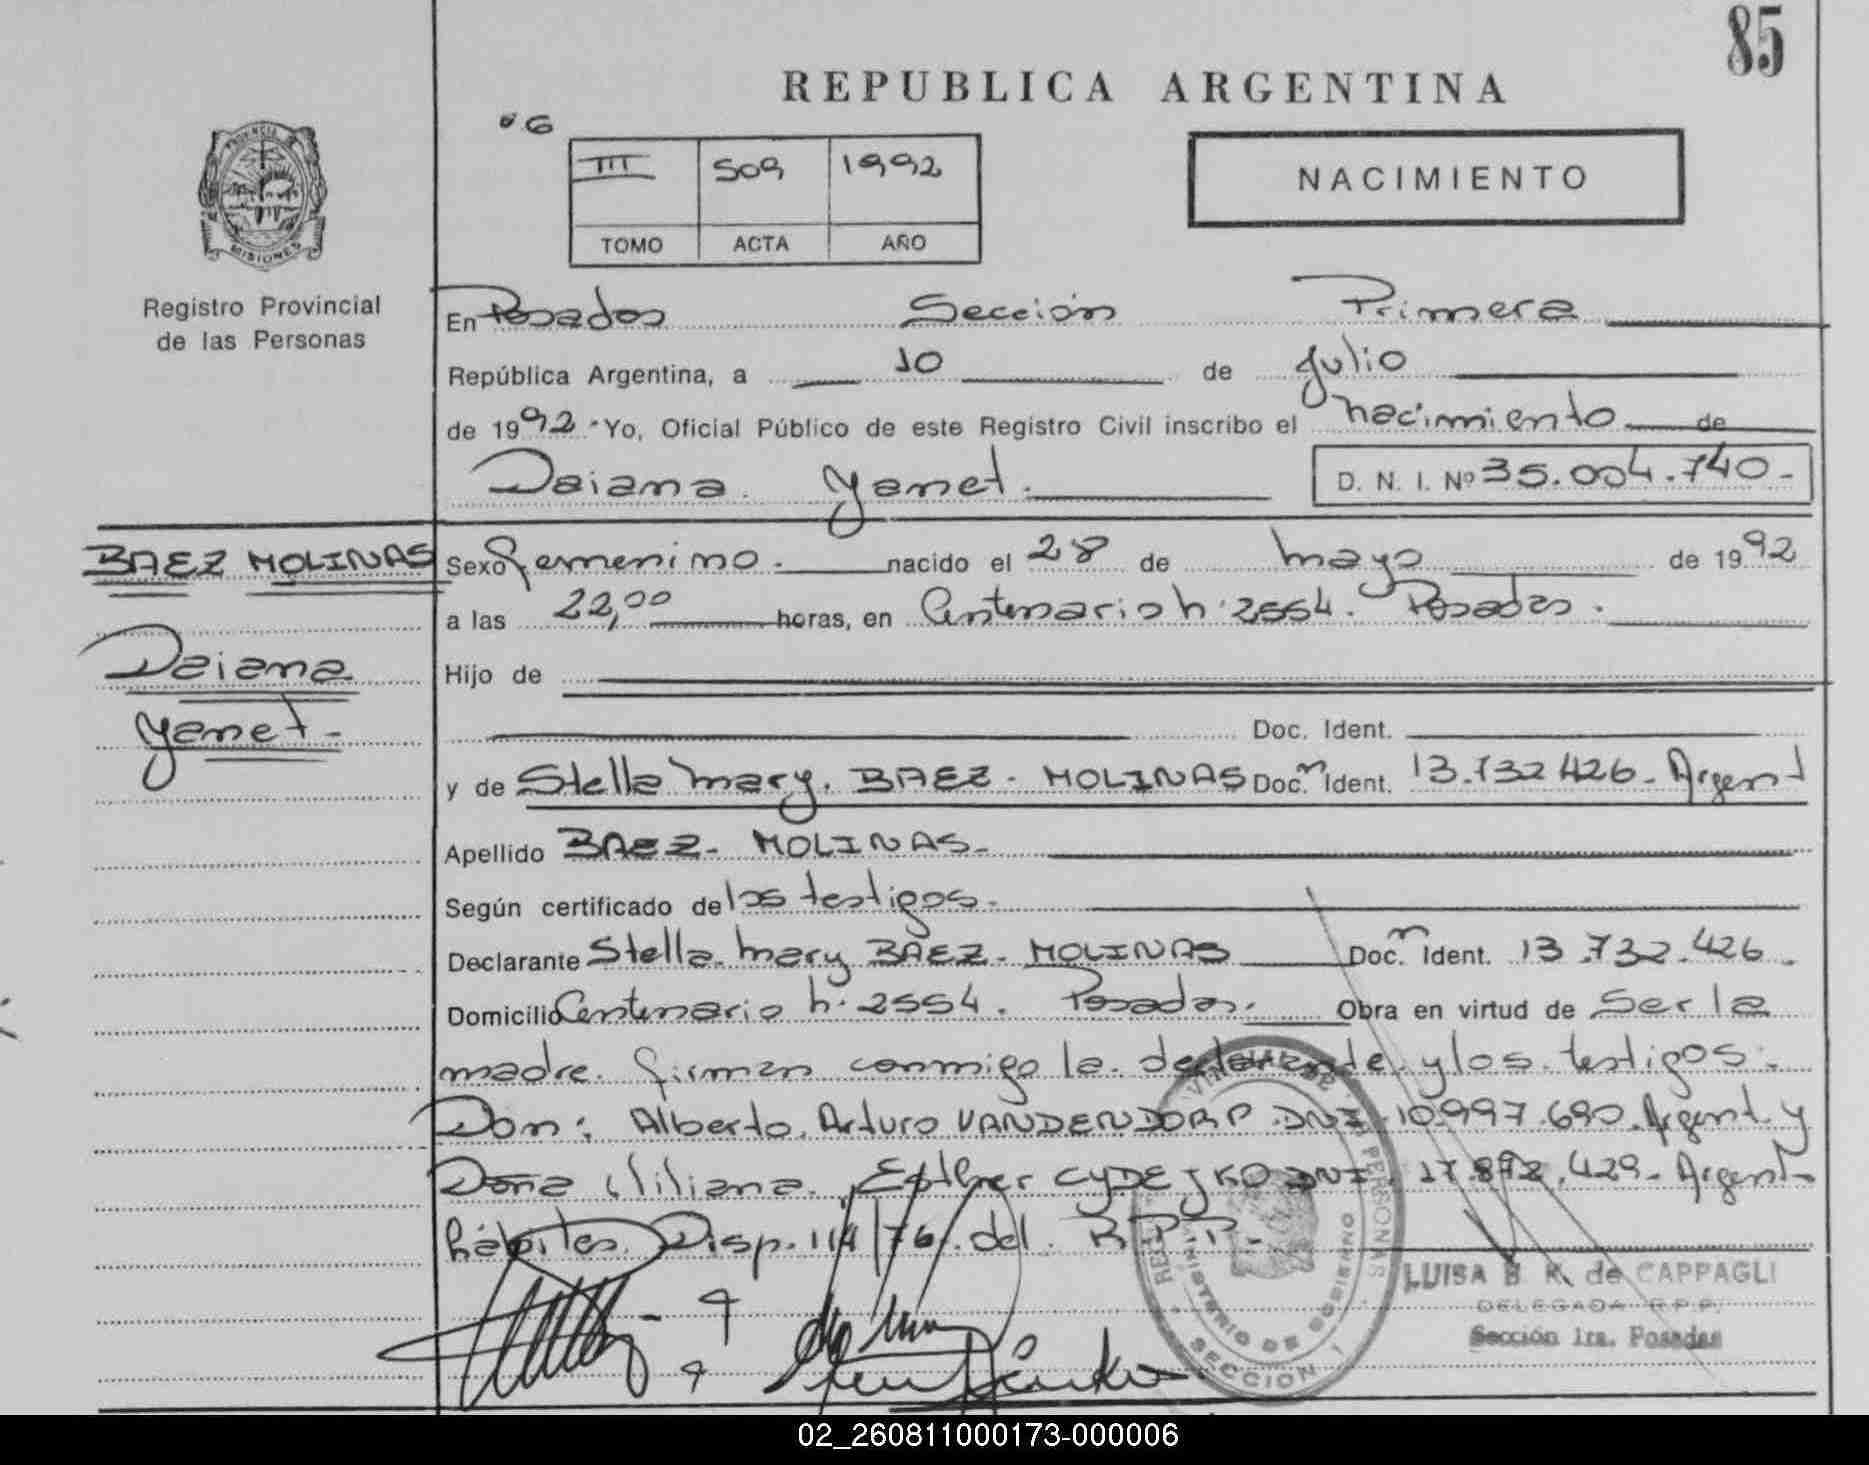 85
REPUBLICA ARGENTINA
PROVINCIA DE
MISIONES
III 509 1992
TOMO ACTA AÑO
NACIMIENTO
Registro Provincial
de las Personas
En Posadas Sección Primera
República Argentina, a 10 de Julio
de 1992 Yo, Oficial Público de este Registro Civil inscribo el nacimiento de
Daiana Yanet. D. N. I. Nº 35.004.740-
BAEZ MOLINAS
Daiana
Yanet-
Sexo femenino. nacido el 28 de mayo de 1992
a las 22,00 horas, en Centenario n: 2554. Posadas.
Hijo de
Doc. Ident.
y de Stella Mary. BAEZ- MOLINAS Doc. Ident. 13.732426- Argent
Apellido BAEZ- MOLINAS-
Según certificado de los testigos.
Declarante Stella Mary BAEZ- MOLINAS Doc. Ident. 13.732.426.
Domicilio Centenario n: 2554. Posadas. Obra en virtud de Ser la
madre. Firman conmigo la declarante y los testigos:
Don: Alberto Arturo VANDENDORP DNI 10.997.690. Argent y
Doña Liliana Esther CYDEJKO DNI 17.892.429- Argent
hábiles. Disp. 114/76 del R.P.P.
MINISTERIO DE GOBIERNO
SECCION 1
LUISA B. K. de CAPPAGLI
DELEGADA R.P.P.
Sección 1ra. Posadas
02_260811000173-000006